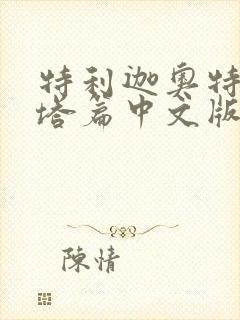 特利迦奥特
塔篇中文版
陳情